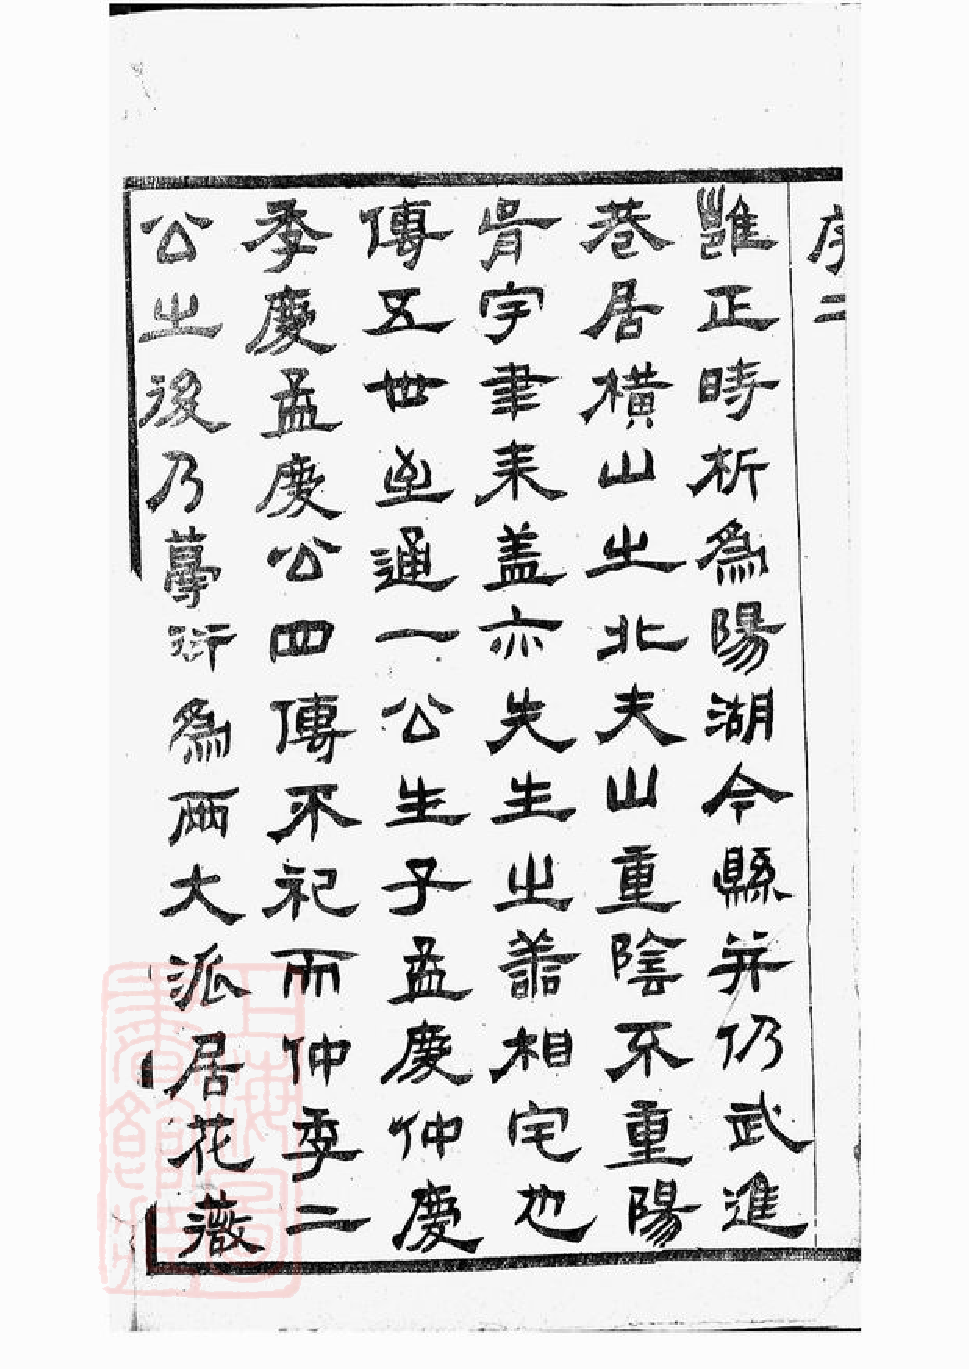 序二
雝正時析為陽湖今縣并仍武進
巷居橫山之北夫山重陰不重陽
胥宇聿來蓋亦先生之善相宅也
傳五世至通一公生子孟慶仲慶
季慶孟慶公四傳不祀而仲季二
公之後乃蔓衍為兩大派居花薇
上海圖書館藏